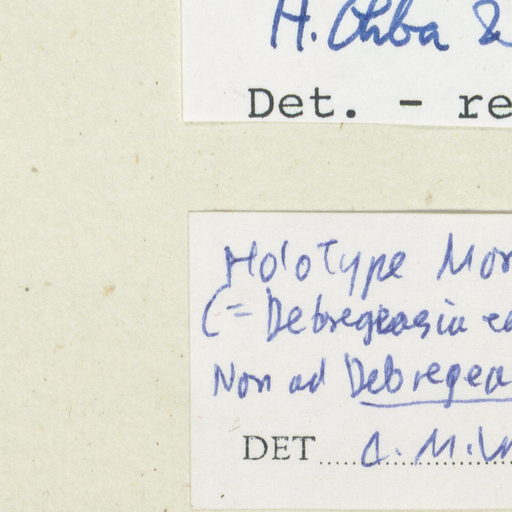 H. Ohba &
Det. - re
Holotype Mor
(= Debregeasia ed
Non ad Debregea
DET A. M. W